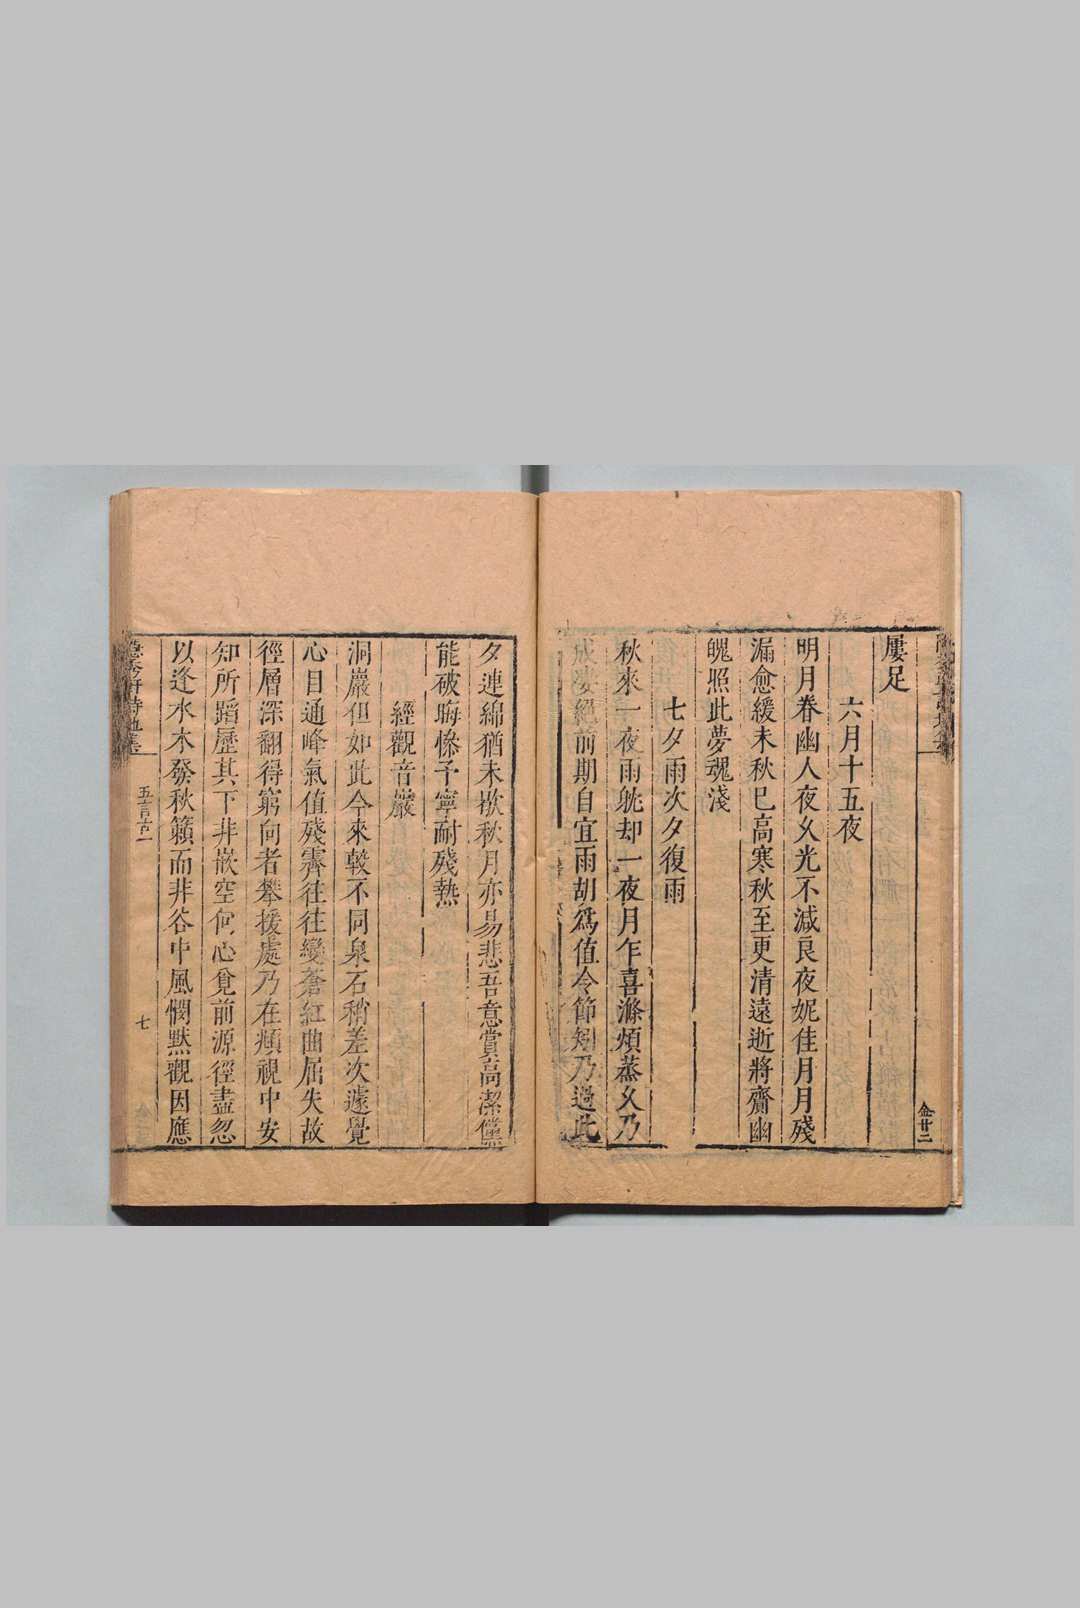 屢足
六月十五夜
明月眷幽人夜久光不減良夜妮佳月月殘
漏愈緩未秋已高寒秋至更清遠逝將齎幽
魄照此夢魂淺
七夕雨次夕復雨
秋來一夜雨能却一夜月乍喜滌煩蒸久乃
成婁絕前期自宜雨胡爲值令節矧乃過此
夕連綿猶未歇秋月亦易悲吾意賞高潔儻
能破晦慘予寧耐殘熱
經觀音巖
洞巖但如此今來輒不同泉石稍差次遽覺
心目通峰氣值殘霽往往變蒼紅曲屈失故
徑層深翻得窮向者攀援處乃在頫視中安
知所蹈歷其下非嵌空何心覓前源徑盡忽
以逢水木發秋籟而非谷中風憫黙觀因應
五言古一
七
金廿二